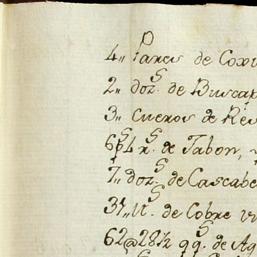 4,, Pares de Coxi
2,, doz.s de Buscap
3,, Cueros de Res
6 r.s de Jabon,
7,, doz.s de Cascabe
31,, de Cobre
62@28½ qq.s de Ag